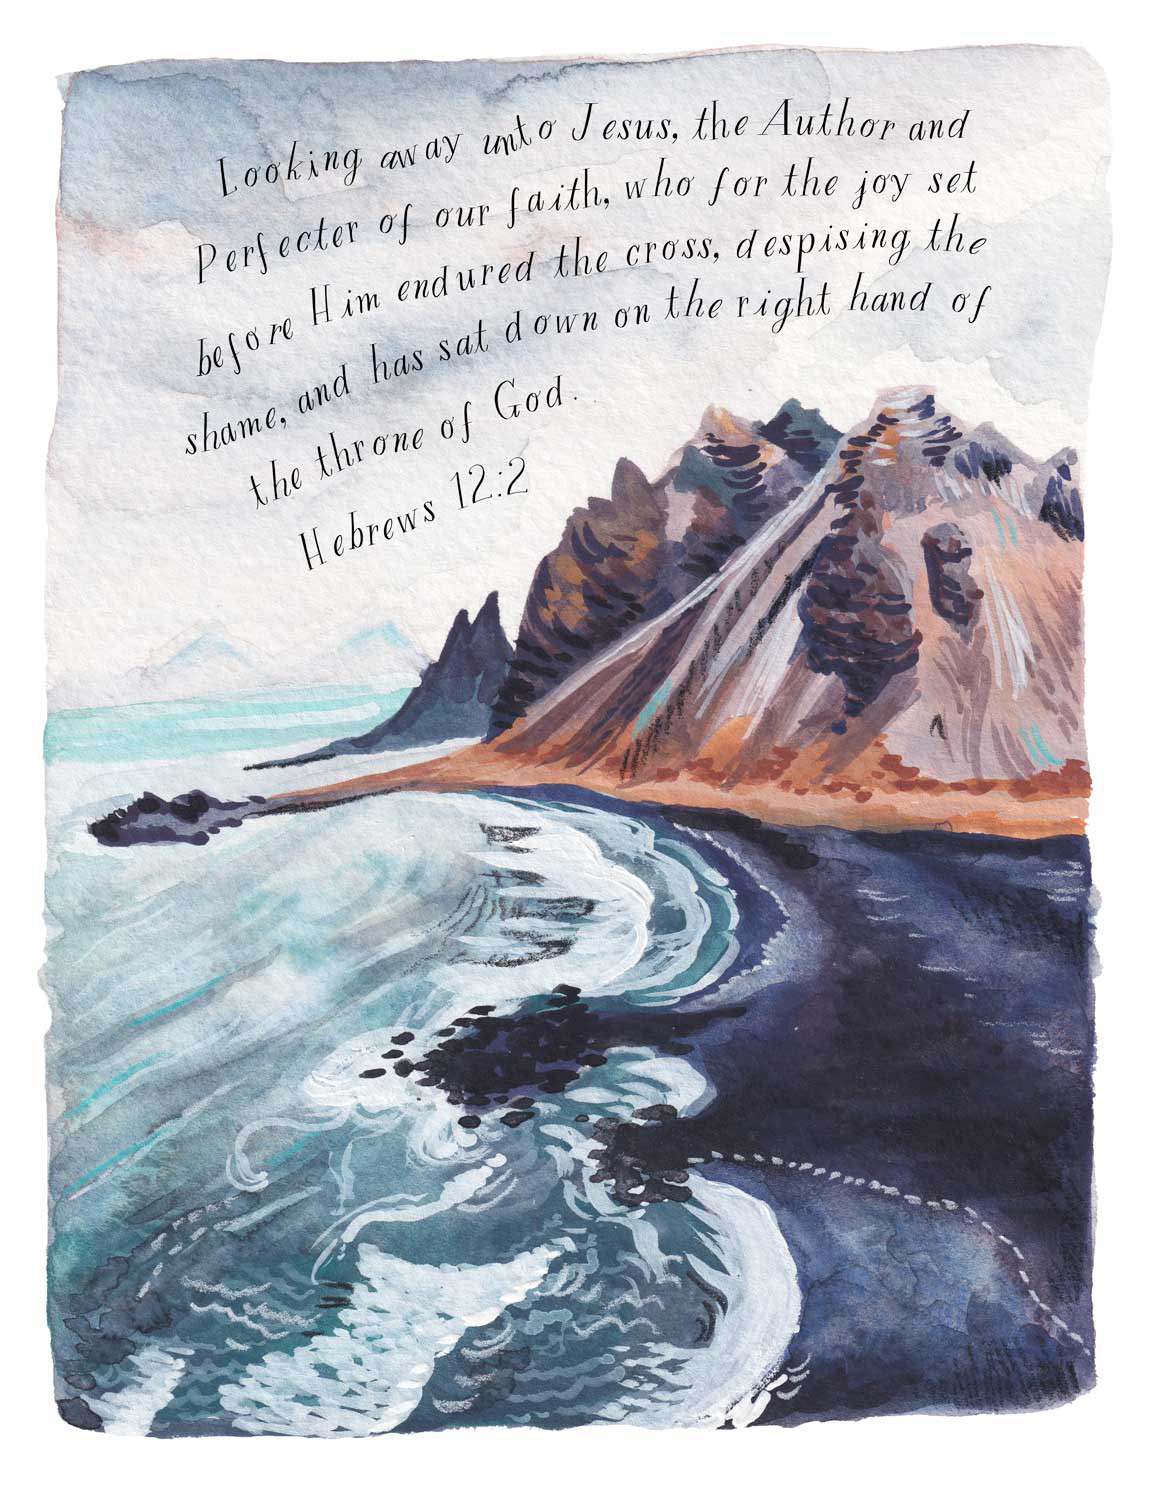 Looking away unto Jesus, the Author and
Perfecter of our faith, who for the joy set
before Him endured the cross, despising the
shame, and has sat down on the right hand of
the throne of God.
Hebrews 12:2